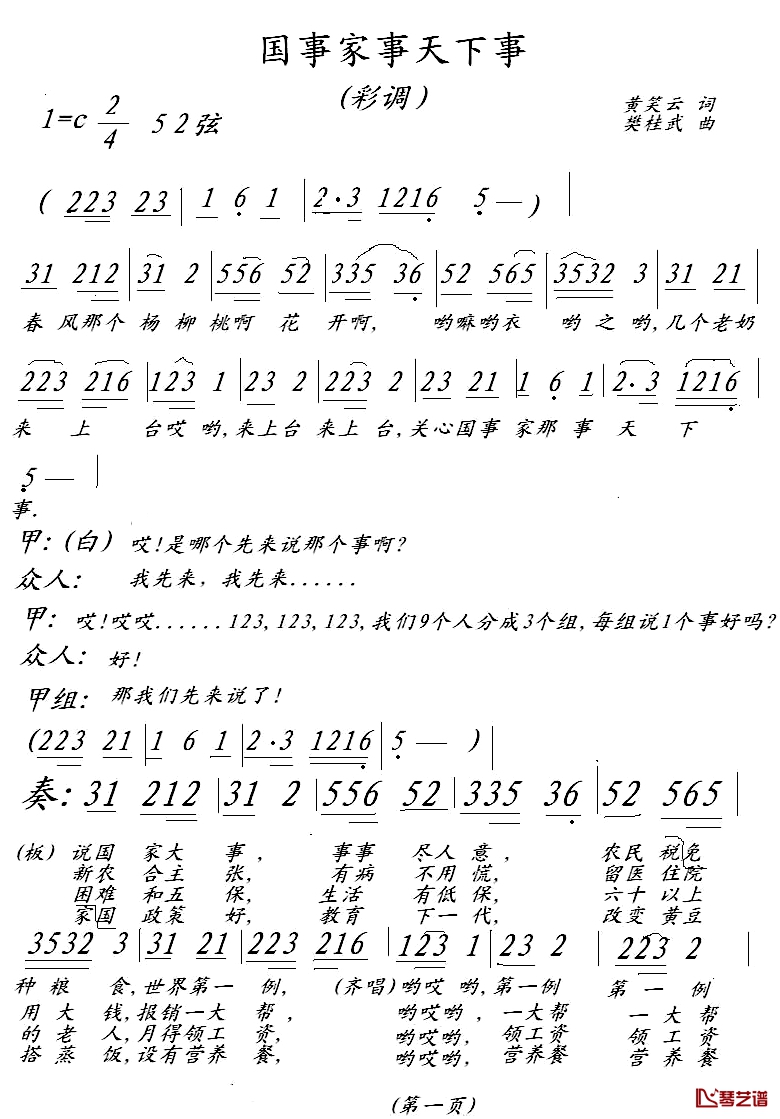 国事家事天下事
(彩调)
1=c 2/4 52弦
黄笑云 词
樊桂武 曲
( 223 23 | 1 6 1 | 2·3 1216 5 — ) |
31 212 | 31 2 | 556 52 | 335 36 | 52 565 | 3532 3 | 31 21 |
春风那个杨柳桃啊花开啊, 哟嘛哟衣哟之哟,几个老奶
223 216 | 123 1 | 23 2 | 223 2 | 23 21 | 1 6 1 | 2·3 1216 |
来上台哎哟,来上台来上台,关心国事家那事天下
5 — |
事.
甲:(白)哎!是哪个先来说那个事啊?
众人: 我先来, 我先来......
甲: 哎!哎哎......123,123,123,我们9个人分成3个组,每组说1个事好吗?
众人: 好!
甲组: 那我们先来说了!
(223 21 | 1 6 1 | 2·3 1216 | 5 — ) |
奏: 31 212 | 31 2 | 556 52 | 335 36 | 52 565 |
(板) 说国家大事, 事事尽人意, 农民税免
新农合主张, 有病不用慌, 留医住院
困难和五保, 生活有低保, 六十以上
家国政策好, 教育下一代, 改变黄豆
3532 3 | 31 21 | 223 216 | 123 1 | 23 2 | 223 2 |
种粮食,世界第一例, (齐唱)哟哎哟,第一例 第一例
用大钱,报销一大帮, 哟哎哟, 一大帮 一大帮
的老人,月得领工资, 哟哎哟, 领工资 领工资
搭蒸饭,设有营养餐, 哟哎哟, 营养餐 营养餐
(第一页)
琴艺谱